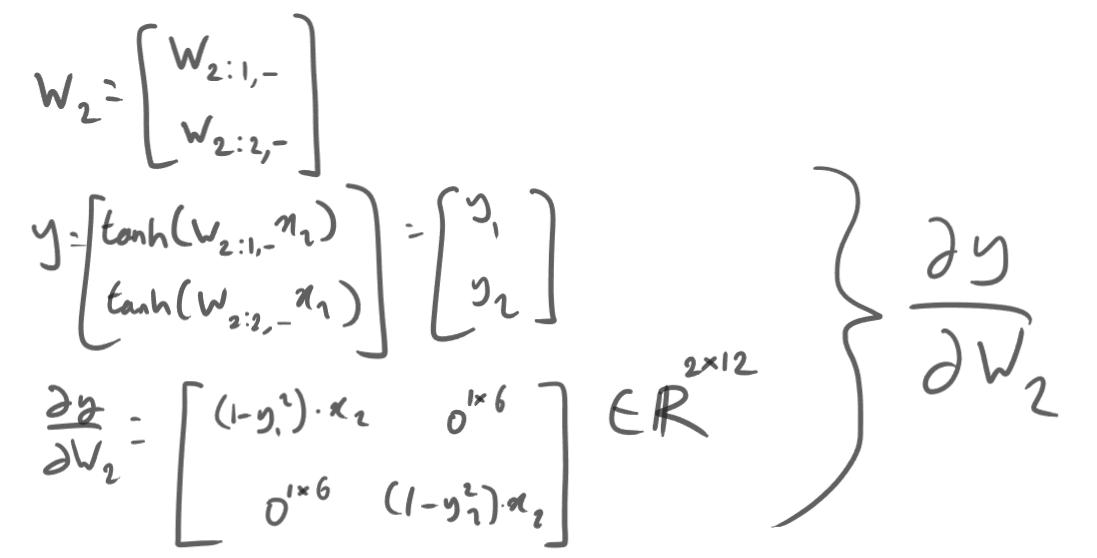 W₂ = [W₂:₁,₋
W₂:₂,₋]
y = [tanh(W₂:₁,₋x₂)
tanh(W₂:₂,₋x₂)] = [y₁
y₂]
∂y/∂W₂ = [(1-y₁²)·x₂ 0^{1×6}
0^{1×6} (1-y₂²)·x₂] ∈ ℝ^{2×12}
} ∂y/∂W₂